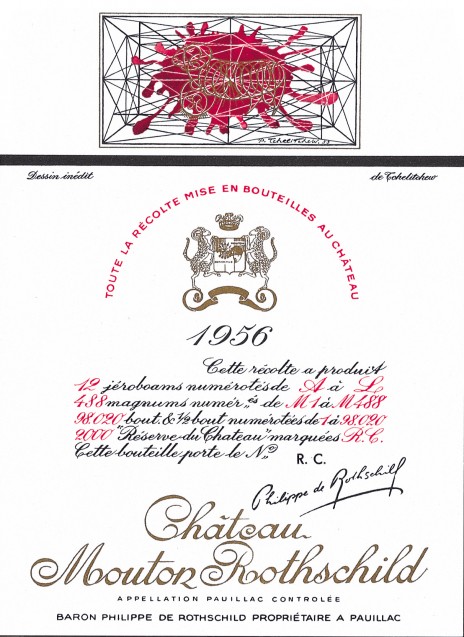 P. Tchelitchew
Dessin inédit
de Tchelitchew
TOUTE LA RÉCOLTE MISE EN BOUTEILLES AU CHÂTEAU
1956
Cette récolte a produit
12 jéroboams numérotés de A à L,
488 magnums numér,,és de M1 à M488
98.020 bout. & ½ bout numérotées de 1 à 98.020
2000 "Réserve du Chateau" marquées R.C.
Cette bouteille porte le Nº R. C.
Philippe de Rothschild
Château
Mouton Rothschild
APPELLATION PAUILLAC CONTROLÉE
BARON PHILIPPE DE ROTHSCHILD PROPRIÉTAIRE A PAUILLAC